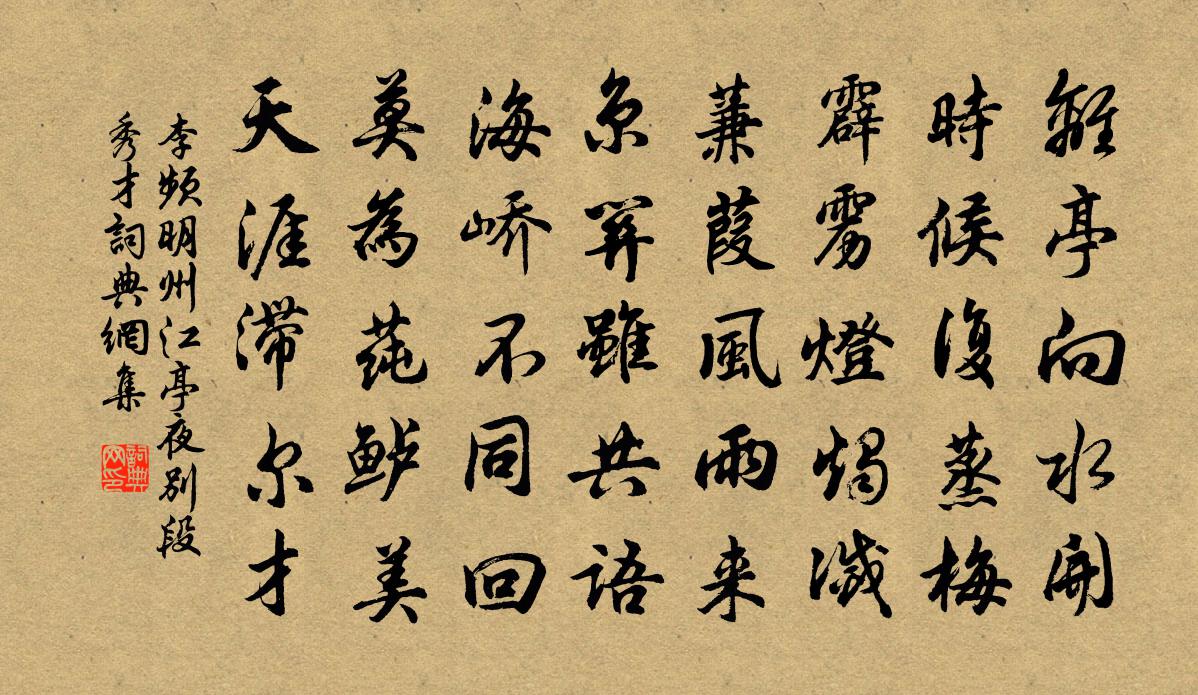 離亭向水開
時候復蒸梅
霹雳燈燭滅
蒹葭風雨来
京関雖共語
海峤不同回
莫為莼鲈美
天涯滯尔才
李頻明州江亭夜别段
秀才詞典網集
詞典
网印